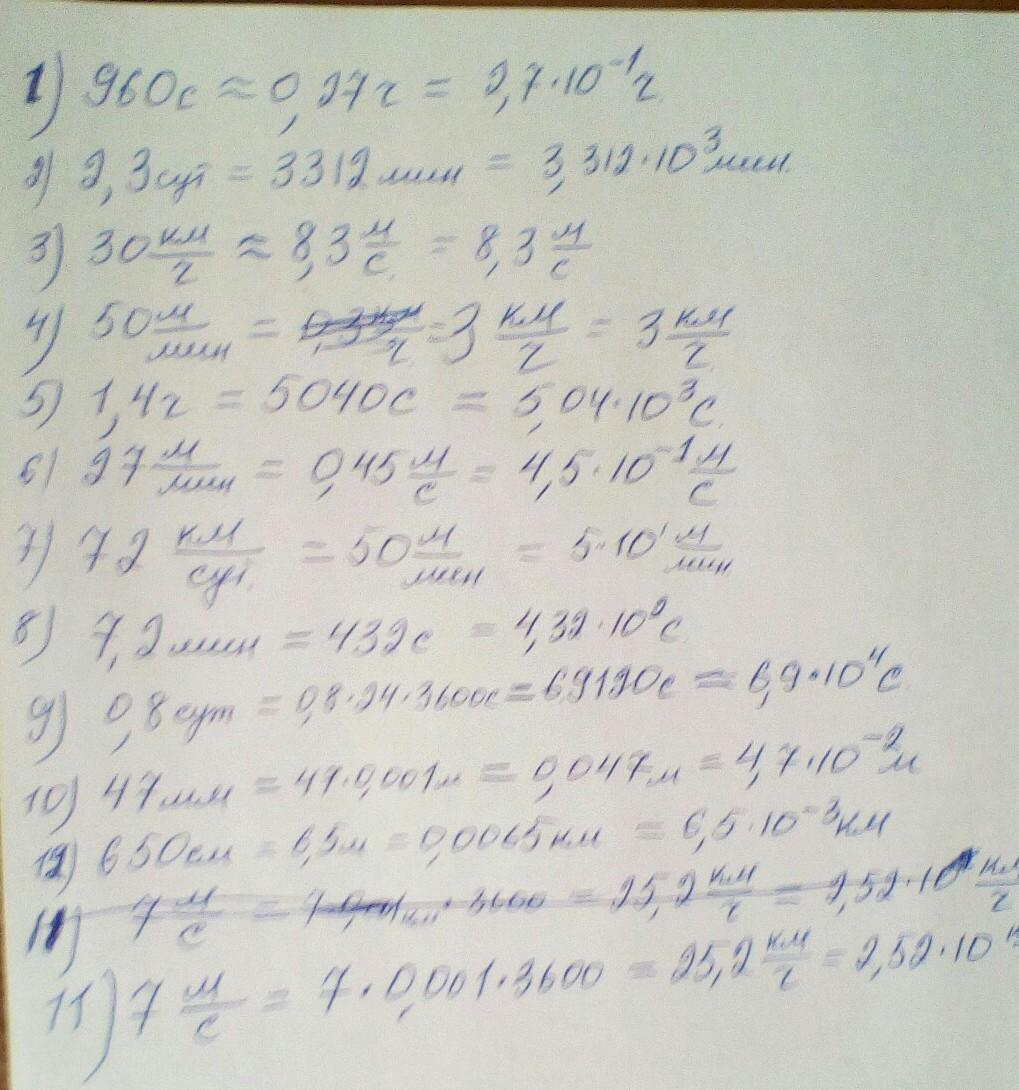 1) 960с ≈ 0,27ч = 2,7·10⁻¹ч
2) 2,3сут = 3312мин = 3,312·10³мин.
3) 30 км/ч ≈ 8,3 м/с = 8,3 м/с
4) 50 м/мин = 3 км/ч = 3 км/ч
5) 1,4ч = 5040с = 5,04·10³с.
6) 27 м/мин = 0,45 м/с = 4,5·10⁻¹ м/с
7) 72 км/сут. = 50 м/мин = 5·10¹ м/мин.
8) 7,2мин = 432с = 4,32·10²с.
9) 0,8сут = 0,8·24·3600с = 69120с ≈ 6,9·10⁴с.
10) 47мм = 47·0,001м = 0,047м = 4,7·10⁻²м
12) 650см = 6,5м = 0,0065км = 6,5·10⁻³км
11) 7 м/с = 7·0,001км·3600 = 25,2 км/ч = 2,52·10¹ км/ч
11) 7 м/с = 7·0,001·3600 = 25,2 км/ч = 2,52·10